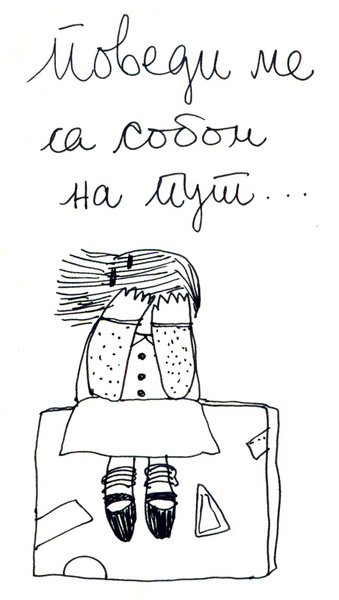 Поведи ме
са собом
на пут...